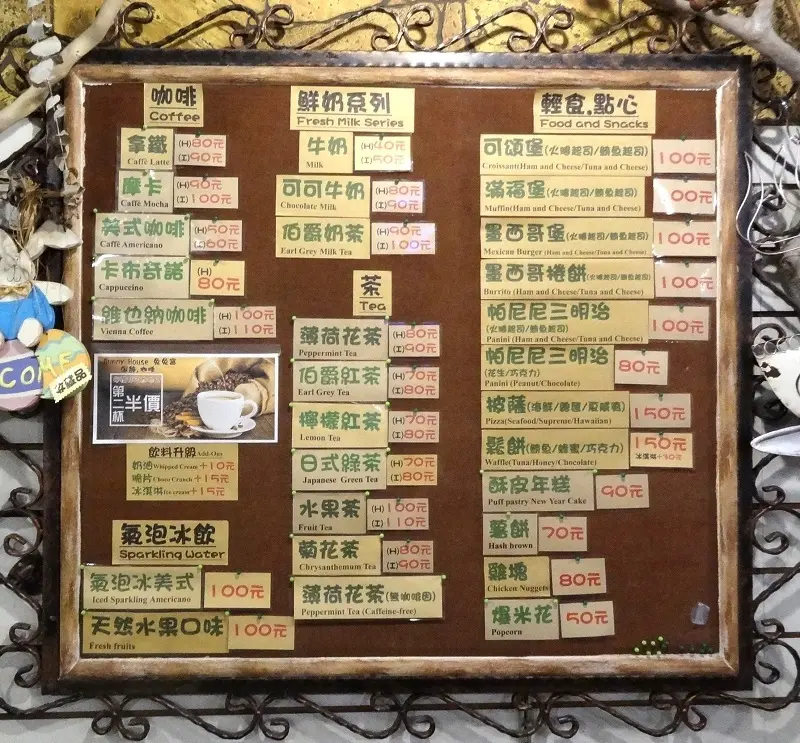 咖啡
Coffee
拿鐵 (H)80元
Caffè Latte (I)90元
摩卡 (H)90元
Caffè Mocha (I)100元
美式咖啡 (H)50元
Caffè Americano (I)60元
卡布奇諾 (H)
Cappuccino 80元
維也納咖啡 (H)100元
Vienna Coffee (I)110元
Bunny House 兔兔窩
第二杯半價
飲料升級 Add-Ons
奶油 Whipped Cream +10元
脆片 Choco Crunch +15元
冰淇淋 Ice cream +15元
氣泡冰飲
Sparkling Water
氣泡冰美式 100元
Iced Sparkling Americano
天然水果口味 100元
Fresh fruits
鮮奶系列
Fresh Milk Series
牛奶 (H)40元
Milk (I)50元
可可牛奶 (H)80元
Chocolate Milk (I)90元
伯爵奶茶 (H)90元
Earl Grey Milk Tea (I)100元
茶
Tea
薄荷花茶 (H)80元
Peppermint Tea (I)90元
伯爵紅茶 (H)70元
Earl Grey Tea (I)80元
檸檬紅茶 (H)70元
Lemon Tea (I)80元
日式綠茶 (H)70元
Japanese Green Tea (I)80元
水果茶 (H)100元
Fruit Tea (I)110元
菊花茶 (H)80元
Chrysanthemum Tea (I)90元
薄荷花茶(無咖啡因)
Peppermint Tea (Caffeine-free)
輕食.點心
Food and Snacks
可頌堡(火腿起司/鮪魚起司) 100元
Croissant(Ham and Cheese/Tuna and Cheese)
滿福堡(火腿起司/鮪魚起司) 00元
Muffin(Ham and Cheese/Tuna and Cheese)
墨西哥堡(火腿起司/鮪魚起司) 100元
Mexican Burger (Ham and Cheese/Tuna and Cheese)
墨西哥捲餅(火腿起司/鮪魚起司) 100元
Burrito (Ham and Cheese/Tuna and Cheese)
帕尼尼三明治 100元
(火腿起司/鮪魚起司)
Panini (Ham and Cheese/Tuna and Cheese)
帕尼尼三明治 80元
(花生/巧克力)
Panini (Peanut/Chocolate)
披薩(海鮮/總匯/夏威夷) 150元
Pizza(Seafood/Supreme/Hawaiian)
鬆餅(鮪魚/蜂蜜/巧克力) 150元
Waffle(Tuna/Honey/Chocolate) 冰淇淋+30元
酥皮年糕 90元
Puff pastry New Year Cake
薯餅 70元
Hash brown
雞塊 80元
Chicken Nuggets
爆米花 50元
Popcorn